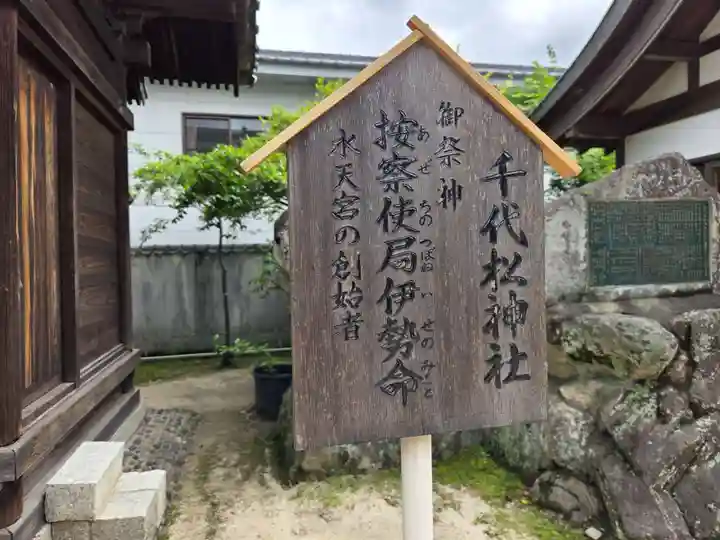 千代松神社
御祭神
按察使局伊勢命
あぜちのつぼねいせのみこと
水天宮の創始者